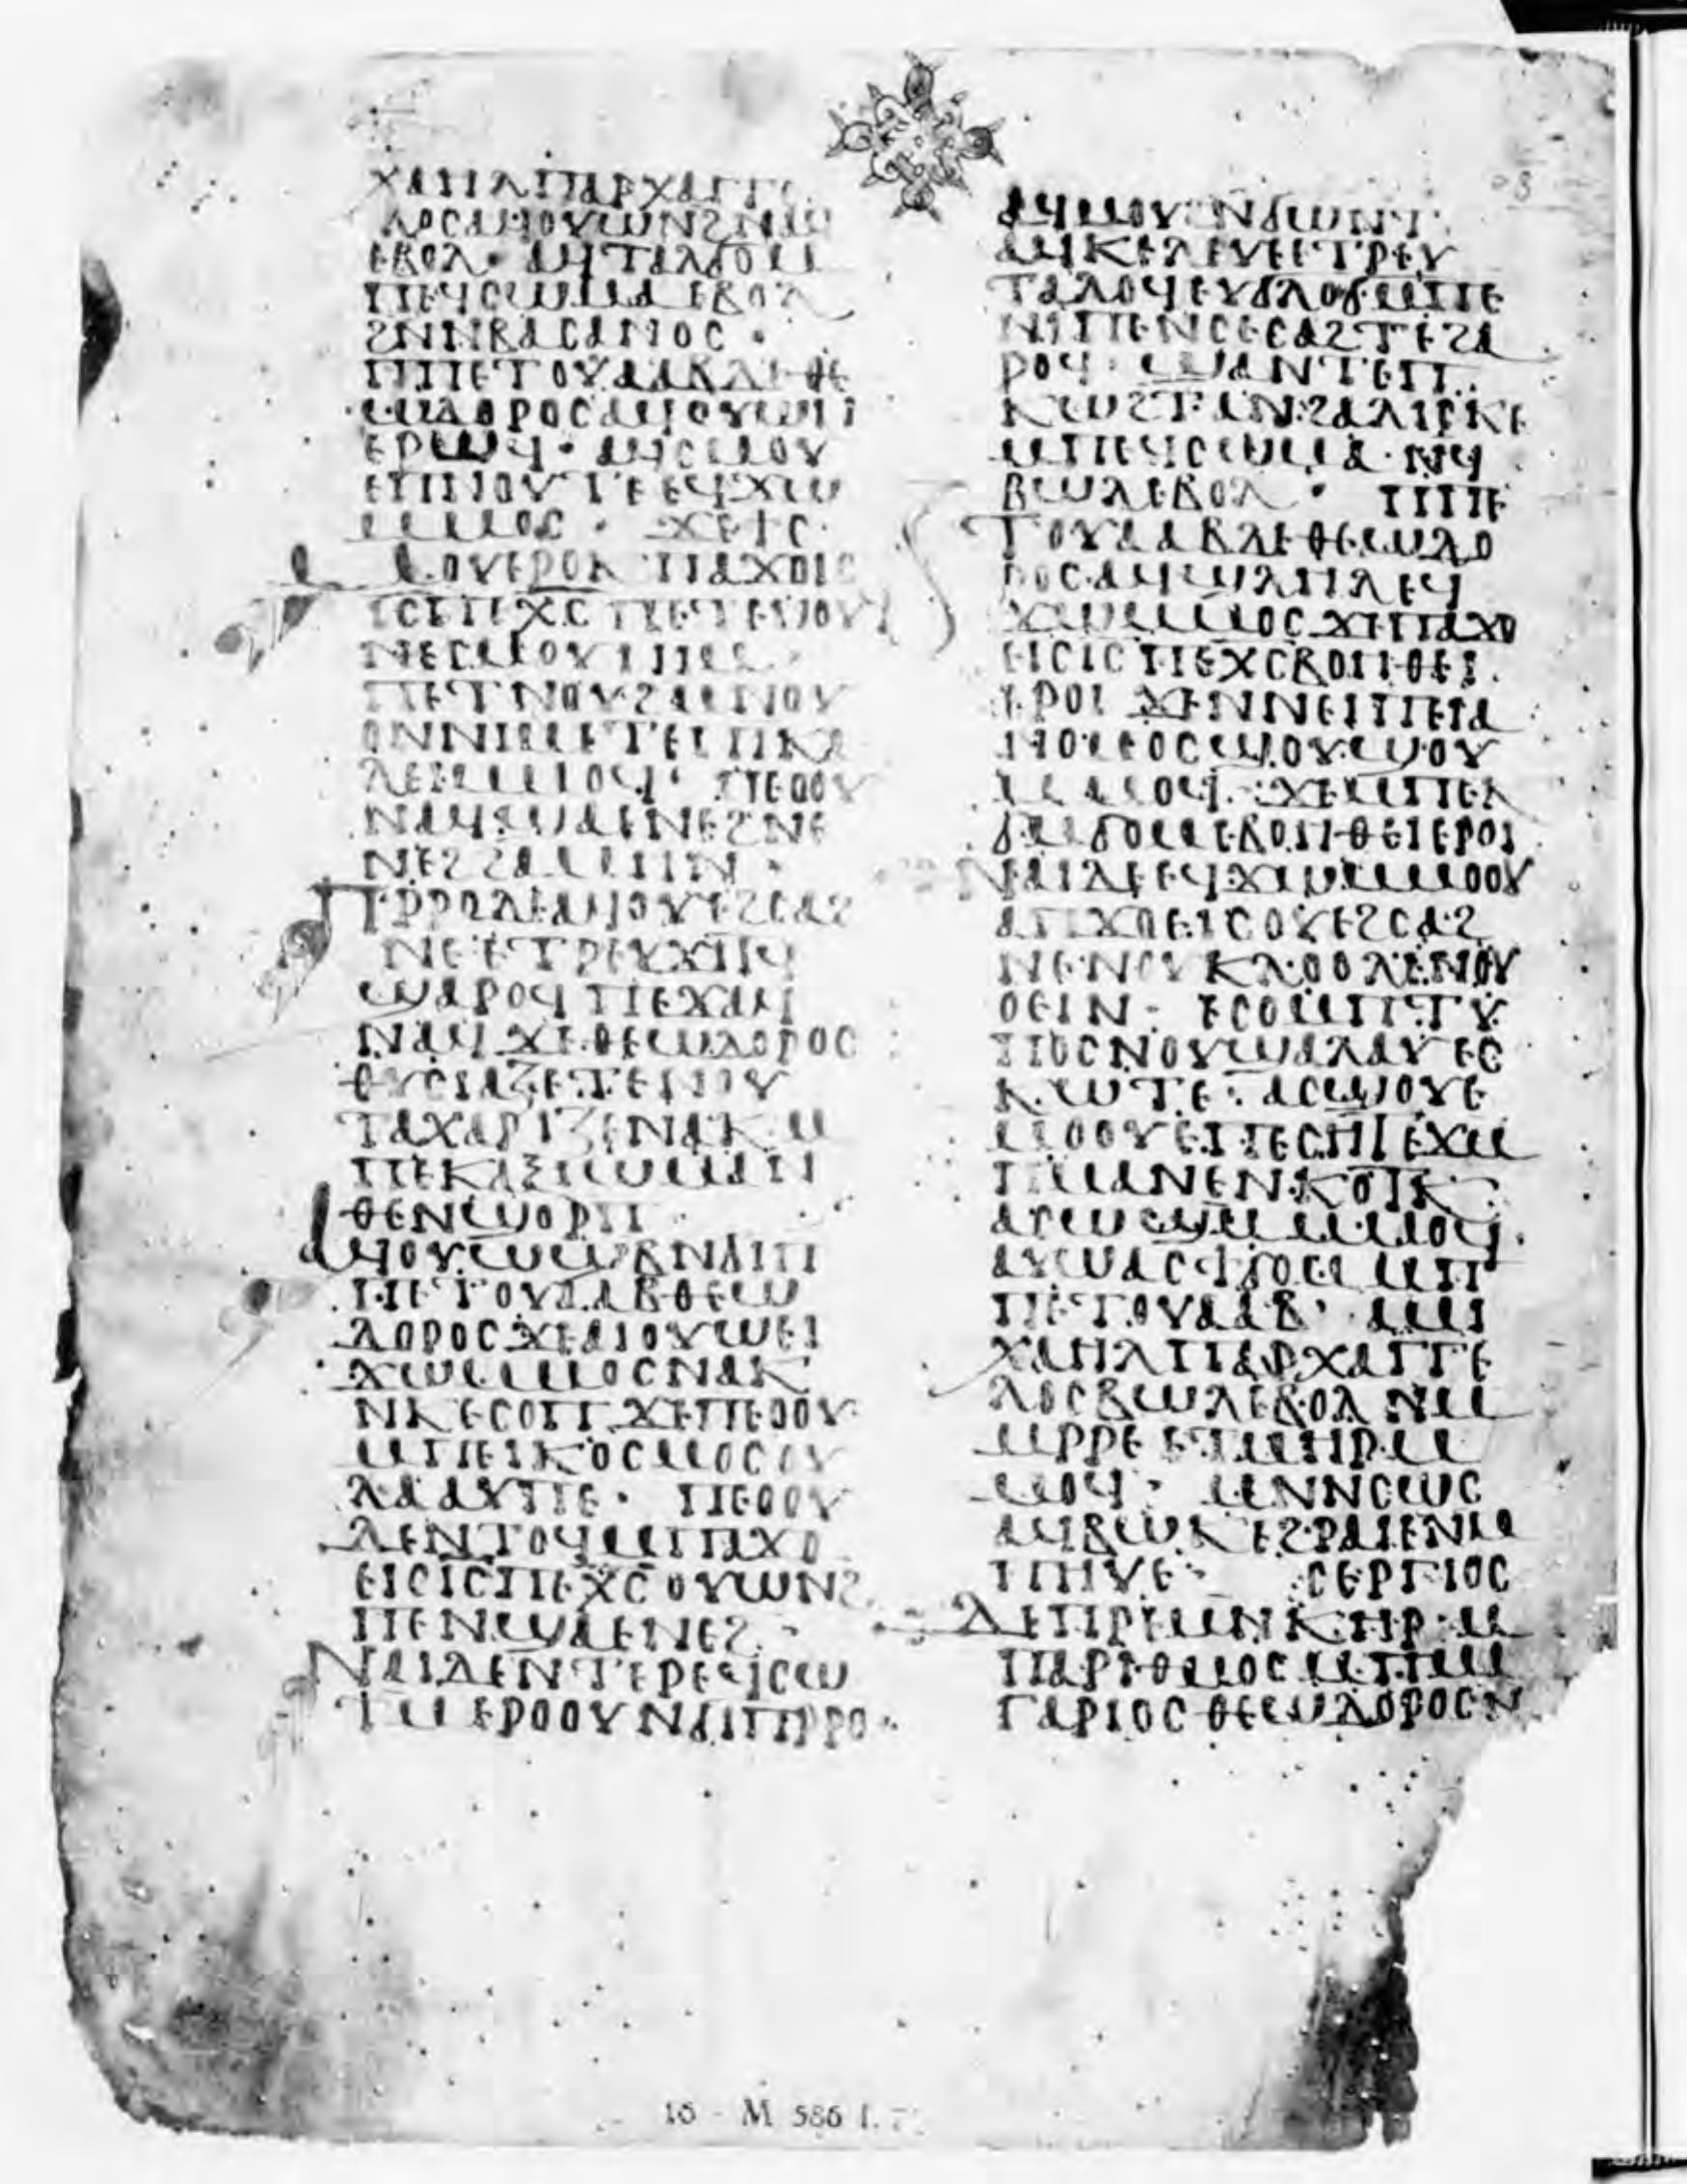 ⲭⲁⲏⲗ ⲡⲁⲣⲭⲁⲅⲅⲉ
ⲗⲟⲥ ⲁϥⲟⲩⲱⲛϩ ⲛⲁϥ
ⲉⲃⲟⲗ · ⲁϥⲧⲁⲗϭⲟ ⲙ
ⲡⲉϥⲥⲱⲙⲁ ⲉⲃⲟⲗ
ϩⲛⲛⲃⲁⲥⲁⲛⲟⲥ ·
ⲡⲡⲉⲧⲟⲩⲁⲁⲃ ⲇⲉ ⲑⲉ
ⲱⲇⲟⲣⲟⲥ ⲁϥⲟⲩⲱⲛ
ⲉⲣⲱϥ · ⲁϥⲥⲙⲟⲩ
ⲉⲡⲛⲟⲩⲧⲉ ⲉϥϫⲱ
ⲙⲙⲟⲥ · ϫⲉϯⲥ
ⲙⲟⲩ ⲉⲣⲟⲕ ⲡⲁϫⲟⲓⲥ
ⲓⲥ ⲡⲉⲭⲥ ⲡⲉⲧⲉⲣⲉⲟⲩ
ⲛⲉⲥⲙⲟⲩ ⲛⲓⲙ ·
ⲡⲉⲧⲛⲟⲩϩⲙ ⲛⲟⲩ
ⲟⲛ ⲛⲓⲙ ⲉⲧⲉⲡⲓⲕⲁ
ⲗⲉⲓ ⲙⲙⲟϥ · ⲡⲉⲟⲟⲩ
ⲛⲁϥ ϣⲁ ⲉⲛⲉϩ ⲛⲉ
ⲛⲉϩ ϩⲁⲙⲏⲛ ·
ⲡⲣⲣⲟ ⲇⲉ ⲁϥⲟⲩⲉϩⲥⲁϩ
ⲛⲉ ⲉⲧⲣⲉⲩϫⲓⲧϥ
ϣⲁⲣⲟϥ ⲡⲉϫⲁϥ
ⲛⲁϥ ϫⲉ ⲑⲉⲱⲇⲟⲣⲟⲥ
ⲑⲩⲥⲓⲁⲍⲉ ⲧⲉⲛⲟⲩ
ⲧⲁⲭⲁⲣⲓⲍⲉ ⲛⲁⲕ ⲙ
ⲡⲉⲕⲁⲝⲓⲱⲙⲁ ⲛ
ⲑⲉ ⲛϣⲟⲣⲡ
ⲁϥⲟⲩⲱϣⲃ ⲛϭⲓⲡ
ⲡⲉⲧⲟⲩⲁⲁⲃ ⲑⲉⲱ
ⲇⲟⲣⲟⲥ ϫⲉ ⲁⲓⲟⲩⲱ ⲉⲓ
ϫⲱ ⲙⲙⲟⲥ ⲛⲁⲕ
ⲛⲕⲉⲥⲟⲡ ϫⲉ ⲡⲉⲟⲟⲩ
ⲙⲡⲉⲓⲕⲟⲥⲙⲟⲥ ⲟⲩ
ⲗⲁⲁⲩ ⲡⲉ · ⲡⲉⲟⲟⲩ
ⲇⲉ ⲛⲧⲟϥ ⲙⲡⲁϫⲟ
ⲉⲓⲥ ⲓⲥ ⲡⲉⲭⲥ ⲟⲩⲱⲛϩ
ⲡⲉ ⲛϣⲁ ⲉⲛⲉϩ ·
ⲛⲁⲓ ⲇⲉ ⲛⲧⲉⲣⲉϥⲥⲱ
ⲧⲙ ⲉⲣⲟⲟⲩ ⲛϭⲓⲡⲣⲣⲟ
ⲁϥⲙⲟⲩϩ ⲛϭⲱⲛⲧ
ⲁϥⲕⲉⲗⲉⲩⲉ ⲉⲧⲣⲉⲩ
ⲧⲁⲗⲟϥ ⲉⲩϭⲗⲟϭ ⲙⲡⲉ
ⲛⲓⲡⲉ ⲛⲥⲉⲥⲁϩⲧⲉ ϩⲁ
ⲣⲟϥ · ϣⲁⲛⲧⲉⲡ
ⲕⲱϩⲧ ⲁⲛϩⲁⲗⲓⲥⲕⲉ
ⲙⲡⲉϥⲥⲱⲙⲁ · ⲛϥ
ⲃⲱⲗ ⲉⲃⲟⲗ · ⲡⲡⲉ
ⲧⲟⲩⲁⲁⲃ ⲇⲉ ⲑⲉⲱⲇⲟ
ⲣⲟⲥ ⲁϥϣⲗⲏⲗ ⲉϥ
ϫⲱ ⲙⲙⲟⲥ ϫⲉ ⲡⲁϫⲟ
ⲉⲓⲥ ⲓⲥ ⲡⲉⲭⲥ ⲃⲟⲏⲑⲉⲓ
ⲉⲣⲟⲓ ϫⲉ ⲛⲛⲉ ⲡⲉⲓⲁ
ⲛⲟⲙⲟⲥ ϣⲟⲩϣⲟⲩ
ⲙⲙⲟϥ · ϫⲉ ⲙⲡⲉⲕ
ϭⲙϭⲟⲙ ⲉⲃⲟⲏⲑⲉⲓ ⲉⲣⲟⲓ
ⲛⲁⲓ ⲇⲉ ⲉϥϫⲱ ⲙⲙⲟⲟⲩ
ⲁⲡϫⲟⲉⲓⲥ ⲟⲩⲉϩⲥⲁϩ
ⲛⲉ ⲛⲟⲩⲕⲗⲟⲟⲗⲉ ⲛⲟⲩ
ⲟⲉⲓⲛ · ⲉⲥⲟ ⲙⲡⲧⲩ
ⲡⲟⲥ ⲛⲟⲩϣⲁⲗⲁⲩ ⲉⲥ
ⲕⲱⲧⲉ · ⲁⲥϣⲟⲩⲉ
ⲙⲟⲟⲩ ⲉⲡⲉⲥⲏⲧ ⲉϫⲙ
ⲡⲙⲁ ⲛⲉⲛⲕⲟⲧⲕ ·
ⲁⲥⲱϣⲙ ⲙⲙⲟϥ ·
ⲁⲩⲱ ⲁⲥϯϭⲟⲙ ⲙⲡ
ⲡⲉⲧⲟⲩⲁⲁⲃ · ⲁⲙⲓ
ⲭⲁⲏⲗ ⲡⲁⲣⲭⲁⲅⲅⲉ
ⲗⲟⲥ ⲃⲱⲗ ⲉⲃⲟⲗ ⲛⲙ
ⲙⲣⲣⲉ ⲉⲧⲙⲏⲣ ⲙ
ⲙⲟϥ · ⲙⲛⲛⲥⲱⲥ
ⲁϥⲃⲱⲕ ⲉϩⲣⲁⲓ ⲉⲛⲙ
ⲡⲏⲩⲉ · ⲥⲉⲣⲅⲓⲟⲥ
ⲇⲉ ⲡⲣⲉⲙⲛⲕⲏⲣ ⲙ
ⲡⲁⲣⲑⲙⲟⲥ ⲙⲡⲙ
ⲅⲁⲣⲓⲟⲥ ⲑⲉⲱⲇⲟⲣⲟⲥ ⲛ
16 - M 586 f. 7